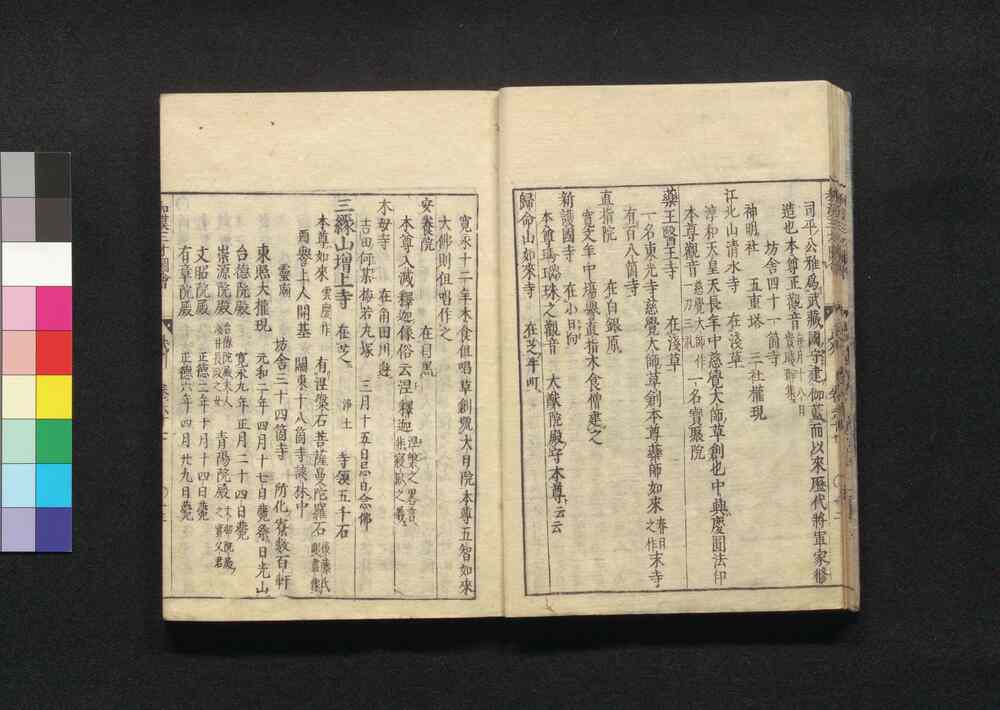 司平公雅爲武藏國守建伽藍而以來歷代將軍家修
造也本尊正觀音 每月十八日貴賤群集
坊舍四十一箇寺
神明社 五重塔 三社權現
江北山清水寺 在淺草
淳和天皇天長年中慈覺大師草創也中興慶圓法印
本尊觀音 慈覺大師作一刀三礼 一名寶聚院
藥王醫王寺 在淺草
一名東光寺慈覺大師草創本尊藥師如來 春日之作 末寺
有百八箇寺
直指院 在白銀原
寬文年中塲譽直指木食僧建之
新護國寺 在小日向
本尊瑪瑙珠之觀音 大猷院殿守本尊云云
歸命山如來寺 在芝牛町
寬永十二年木食但唱草創號大日院本尊五智如來
大佛則但唱作之
安養院 在目黑
本尊入滅釋迦像俗云涅釋迦 涅槃之畧言
木母寺 在角田川邊
吉田何某梅若丸塚 三月十五日忌日念佛
三緣山增上寺 在芝 淨土 寺領五千石
本尊如來 雲慶作 有涅槃石菩薩曼陀羅石
酉譽上人開基 關東十八箇寺談林中
坊舍三十四箇寺 所化寮数百軒
靈廟
東照大權現 元和二年四月十七日薨祭日光山
台德院殿 寬永九年正月二十四日薨
崇源院殿 台德院殿夫人淺井長政之女 青陽院殿 文昭院殿之實父君
文昭院殿 正德二年十月十四日薨
有章院殿 正德六年四月廿九日薨